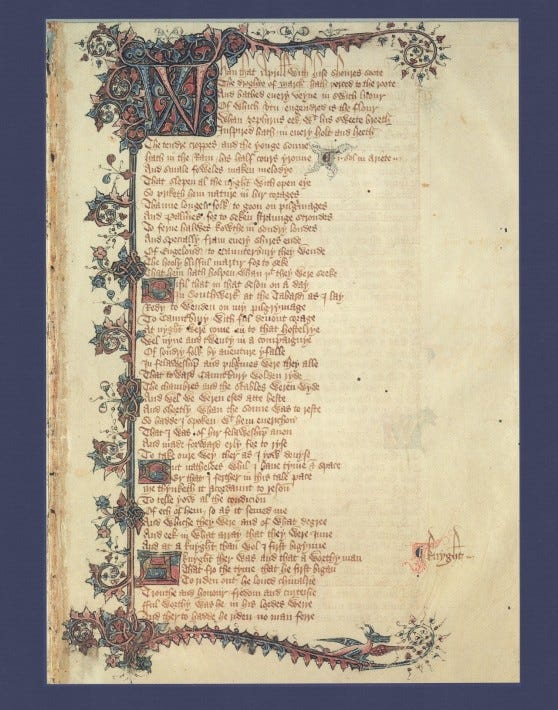 Whan that Aprill with his shoures soote
The droghte of March hath perced to the roote
And bathed every veyne in swich licour
Of which vtu engendred is the flour
Whan zephirus eek wt his sweete breeth
Inspired hath in every holt and heeth
The tendre croppes and the yonge sonne
hath in the Ram his half cours yronne
.i. sol in ariete
And smale foweles maken melodye
That slepen al the nyght with open eye
So priketh hem nature in hir corages
Thanne longen folk to goon on pilgrimages
And Palmeres for to seken straunge strondes
To ferne halwes kowthe in sondry londes
And specially fram every shires ende
Of Engelond to Caunterbury they wende
The hooly blisful martir for to seke
That hem hath holpen whan þt they were seeke
Bifil that in that seson on a day
In Southwerk at the Tabard as I lay
Redy to wenden on my pilgrymage
To Caunterbury with ful devout corage
At nyght were come in to that hostelrye
Wel nyne and twenty in a compaignye
Of sondry folk by aventure yfalle
In felaweshipe and pilgrimes were they alle
That toward Caunterbury wolden ryde
The chambres and the stables weren wyde
And wel we weren esed atte beste
And shortly whan the sonne was to reste
So hadde I spoken wt hem everichon
That I was of hir felaweshipe anon
And made forward erly for to ryse
To take oure wey ther as I yow devyse
But nathelees whil I have tyme & space
Er that I ferther in this tale pace
Me thynketh it acordaunt to reson
To telle yow al the condicion
Of ech of hem so as it semed me
And whiche they were and of what degree
And eek in what array that they were inne
And at a knyght than wol I first bigynne
A knyght ther was and that a worthy man
That fro the tyme that he first bigan
To riden out he loved chivalrie
Trouthe and honour fredom and curteisie
fful worthy was he in his lordes werre
And therto hadde he riden no man ferre
¶ knyght